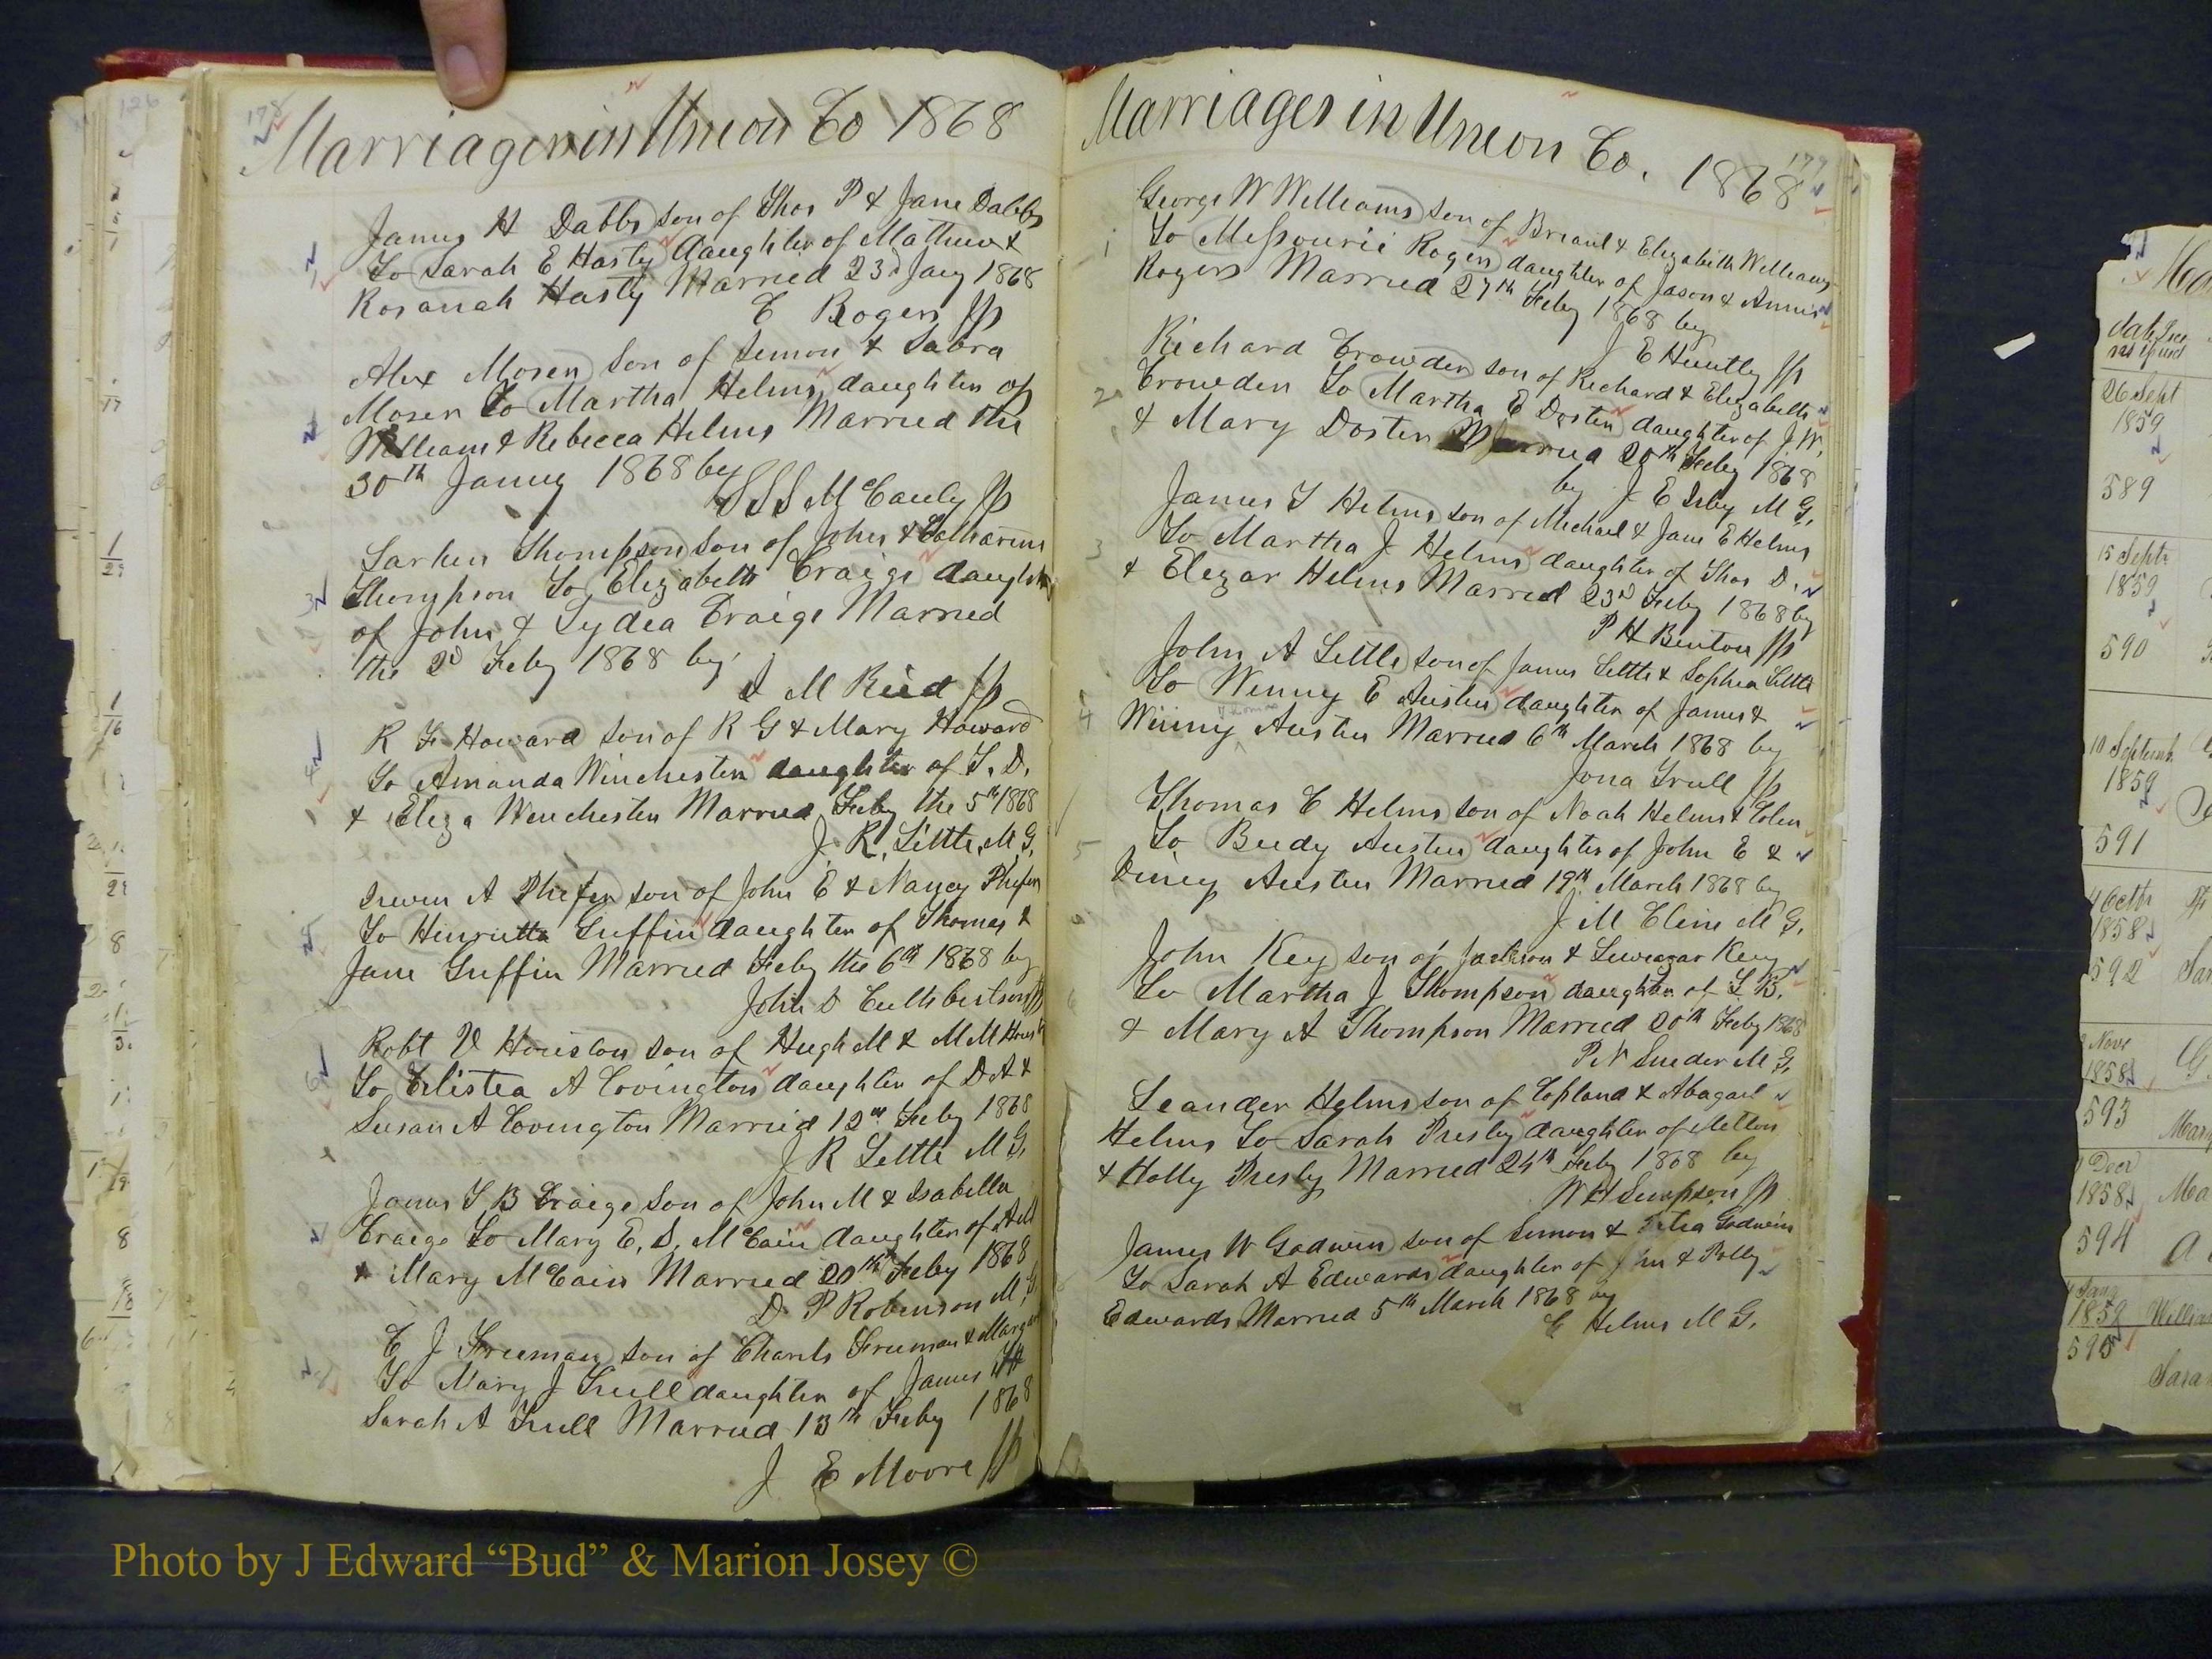 178
Marriages in Union Co 1868
James H Dabbs son of Thos P & Jane Dabbs
To Sarah E Hasty daughter of Mathew &
Rosanah Hasty Married 23d Jany 1868
C Rogers JP
Alex Moser son of Simon & Sabra
Moser To Martha Helms daughter of
William & Rebecca Helms Married the
30th Janny 1868 by
McCauly JP
Larkin Thompson son of John & Catharine
Thompson To Elizabeth Craige daughter
of John & Lydia Craige Married
the 2d Feby 1868 by
J M Reid JP
R F Howard son of R G & Mary Howard
To Amanda Winchester daughter of T. D.
& Eliza Winchester Married Feby the 5th 1868
J. R. Little, M G,
A Phifer son of John E & Nancy Phifer
To Henrietta Griffin daughter of Thomas &
Jane Griffin Married Feby the 6th 1868 by
John D Cuthbertson JP
Robt V Houston son of Hugh M & M M Houst
To A Covington daughter of D A &
Susan A Covington Married 12th Feby 1868
J R Little M G,
James T. B Craige son of John M & Isabella
Craige To Mary E. S. McCain daughter of
& Mary McCain Married 20th Feby 1868
D. P Robinson M, G
C J Freeman son of Charls Freeman & Margar
To Mary J Trull daughter of James
Sarah A Trull Married 13th Feby 1868
J E Moore JP
Marriages in Union Co. 1868
179
George W Williams son of & Elizabeth Williams
1 To Missourie Rogers daughter of Jason & Annis
Rogers Married 27th Feby 1868 by
J E Huntly JP
Richard Crowder son of Richard & Elizabeth
2 Crowder To Martha E Doster daughter of J. W.
& Mary Doster Married 20th Feby 1868
by J E Irby M G,
James T Helms son of Michael & Jane E Helms
3 To Martha J Helms daughter of Thos D.
& Elezar Helms Married 23d Feby 1868 by
P H Benton JP
John A Little son of James Little & Sophia Little
To Winny E Austin daughter of James &
4 Winny Austin Married 6th March 1868 by
Jona Trull JP
Thomas C Helms son of Noah Helms &
5 To Beedy Austin daughter of John E &
Austin Married 19th March 1868 by
J M Cline M G,
John Key son of Jackson & Key
6 To Martha J Thompson daughter of L B.
& Mary A Thompson Married 20th Feby 1868
M G,
Leander Helms son of Copland & Abagail
Helms To Sarah Presly daughter of
& Holly Presly Married 24th Feby 1868 by
W H Simpson JP
James W Godwin son of Simon & Godwin
To Sarah A Edwards daughter of & Polly
Edwards Married 5th March 1868 by
C Helms M G.
26 Sept
1859
589
15 Septr
1859
590
10 Septemb
1859
591
4 Octr
1858
592
Nove
1858
593
Decr
1858
594
1859
595
Photo by J Edward “Bud” & Marion Josey ©